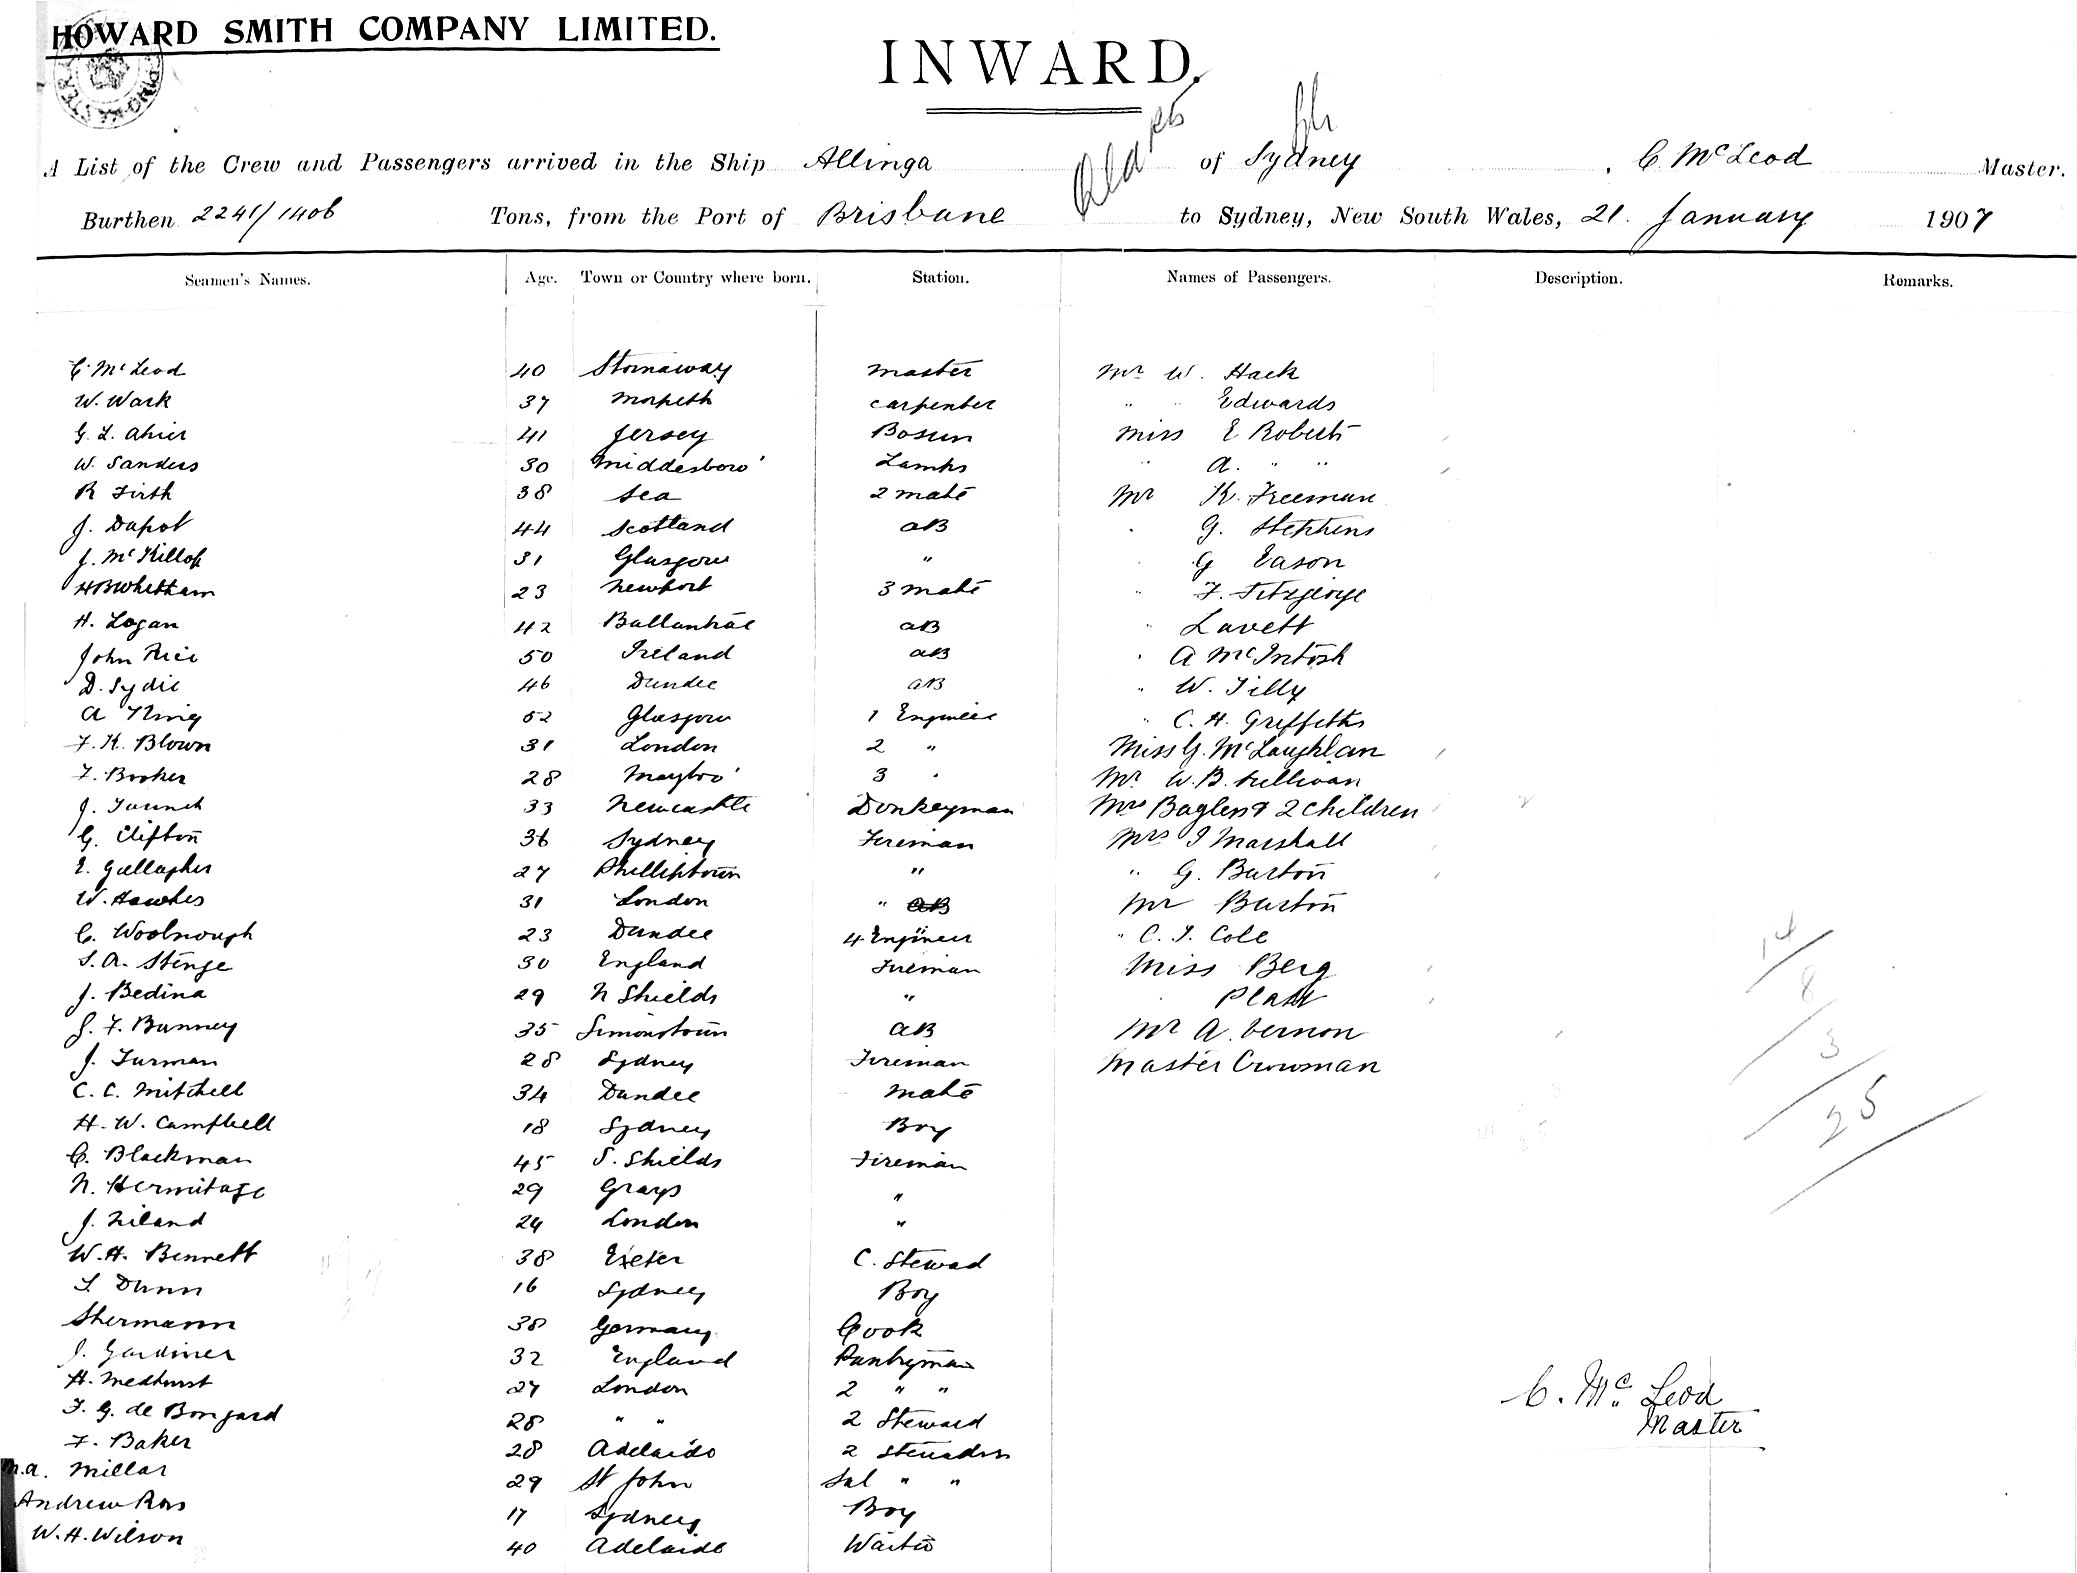 HOWARD SMITH COMPANY LIMITED.
INWARD.
A List of the Crew and Passengers arrived in the Ship Allinga of Sydney, C McLeod Master.
Burthen 2241/1406 Tons, from the Port of Brisbane to Sydney, New South Wales, 21. January 1907
Seamen's Names. Age. Town or Country where born. Station. Names of Passengers. Description. Remarks.
C McLeod 40 Stornaway Master Mr W. Hack
W. Wark 37 Morpeth Carpenter " " Edwards
G. L. Ahier 41 Jersey Bosun Miss E Roberts
W. Sanders 30 Middesboro' Lamps " A. " "
R Firth 38 Sea 2 mate Mr K. Freeman
J. Dapot 44 Scotland AB " G. Stephens
J. McKillop 31 Glasgow " " G Eason
HB Whetham 23 Newport 3 mate " F. Fitzgeorge
H. Logan 42 Ballantrae AB " Lavett
John Rice 50 Ireland AB " A McIntosh
D. Sydie 46 Dundee AB " W. Tilly
A King 52 Glasgow 1 Engineer " C. H. Griffeths
F. K. Blown 31 London 2 " Miss G. McLaughlan
F. Booker 28 Maybro' 3 " Mr W. B. Sullivan
J. 33 Newcastle Donkeyman Mrs & 2 Children
G. Clifton 36 Sydney Fireman Mrs J Marshall
E. Gallagher 27 Phillipstown " " G. Burton
W. Hawkes 31 London " AB Mr Burton
C. Woolnough 23 Dundee 4 Engineer " C. J. Cole
S. A. Stenge 30 England Fireman Miss Berg
J. Bedina 29 N Shields " " Platt
J. F. Bunney 35 Simonstown AB Mr A. Vernon
J. Turman 28 Sydney Fireman Master Crowman
C. C. Mitchell 34 Dundee Mate
H. W. Campbell 18 Sydney Boy
C. Blackman 45 S. Shields Fireman
N. Hermitage 29 Grays "
J. Niland 24 London "
W. H. Bennett 38 Exeter C. Steward
S. Dunn 16 Sydney Boy
Shermann 38 Germany Cook
J. Gardiner 32 England Pantryman
H. Medhurst 27 London 2 " "
F. G. de Bongard 28 " " 2 Steward
F. Baker 28 Adelaide 2 Stewards
M.A. Millar 29 St John Sal " "
Andrew Ross 17 Sydney Boy
W. H. Wilson 40 Adelaide Waiter
14
8
3
25
C. McLeod
Master